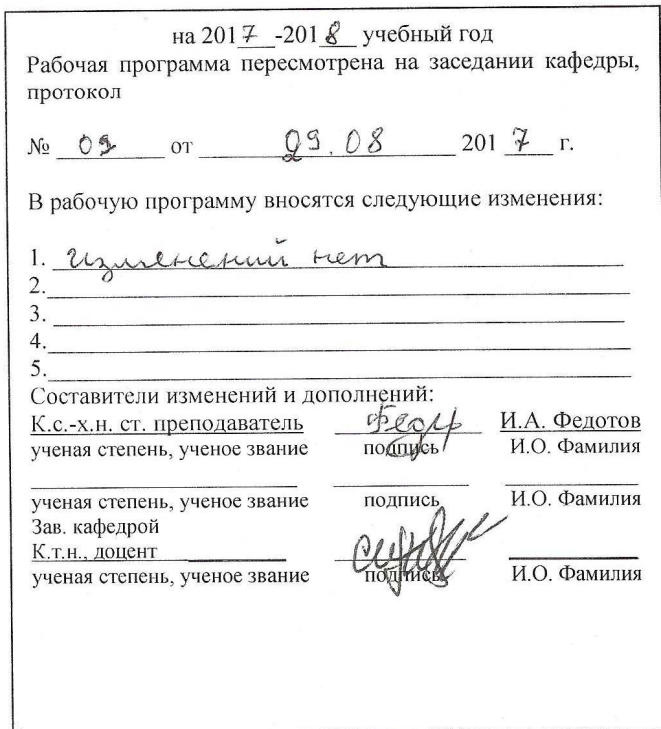 на 2017 -2018 учебный год
Рабочая программа пересмотрена на заседании кафедры,
протокол
№ 09 от 29.08 2017 г.
В рабочую программу вносятся следующие изменения:
1. Изменений нет
2.
3.
4.
5.
Составители изменений и дополнений:
К.с.-х.н. ст. преподаватель И.А. Федотов
ученая степень, ученое звание подпись И.О. Фамилия
ученая степень, ученое звание подпись И.О. Фамилия
Зав. кафедрой
К.т.н., доцент
ученая степень, ученое звание подпись И.О. Фамилия